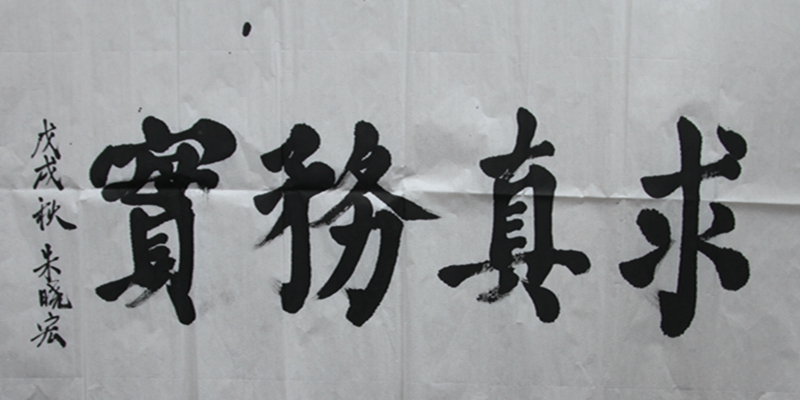 求真務實
戊戌秋朱晓宏